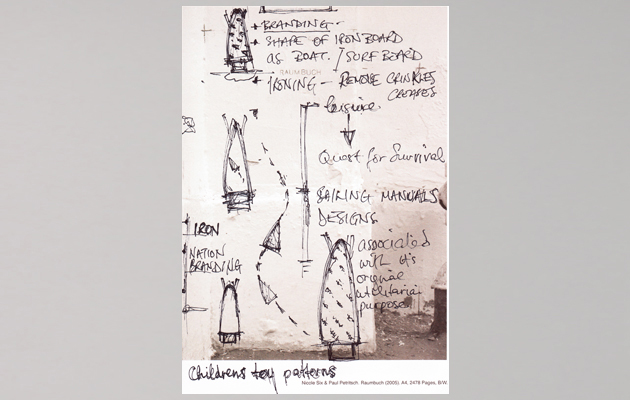 BRANDING -
SHAPE OF IRON BOARD
AS BOAT. / SURF BOARD
RAUMBUCH
IRONING - REMOVE CRINKLES
CREASES
leisure.
Quest for Survival
SAILING MANUALS
DESIGNS
IRON
NATION
BRANDING
associated
with its
original
utilitarian
purpose
Childrens toy patterns
Nicole Six & Paul Petritsch. Raumbuch (2005). A4, 2478 Pages, B/W.